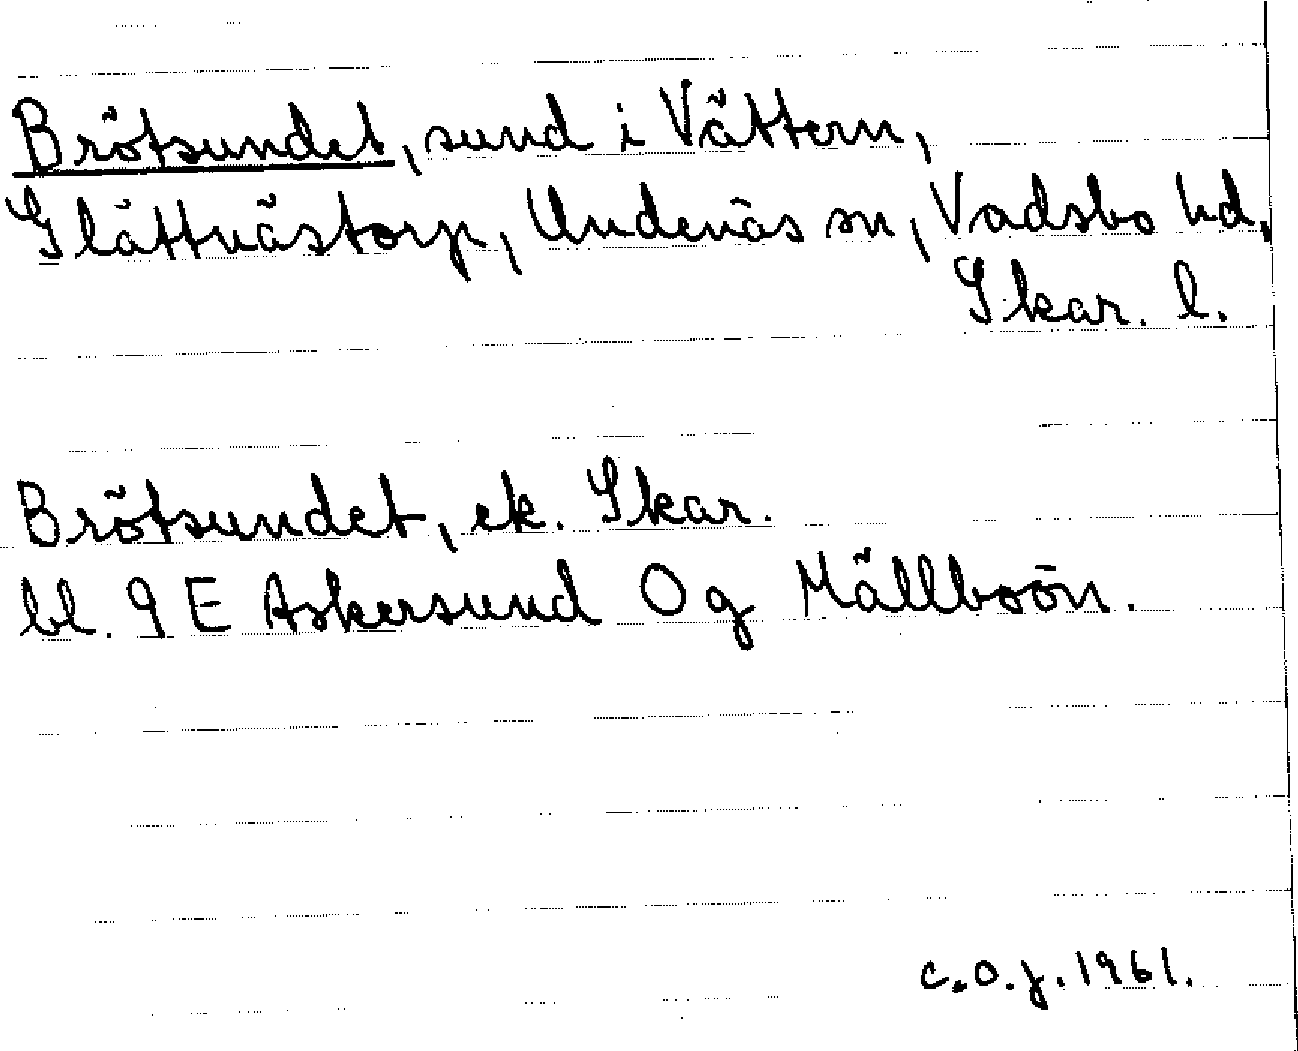 Brötsundet, sund i Vättern,
Glättnästorp, Undenäs sn, Vadsbo hd,
Skar. l.
Brötsundet, ek. Skar.
bl. 9 E Askersund O g Mällboön.
C.O.J. 1961.